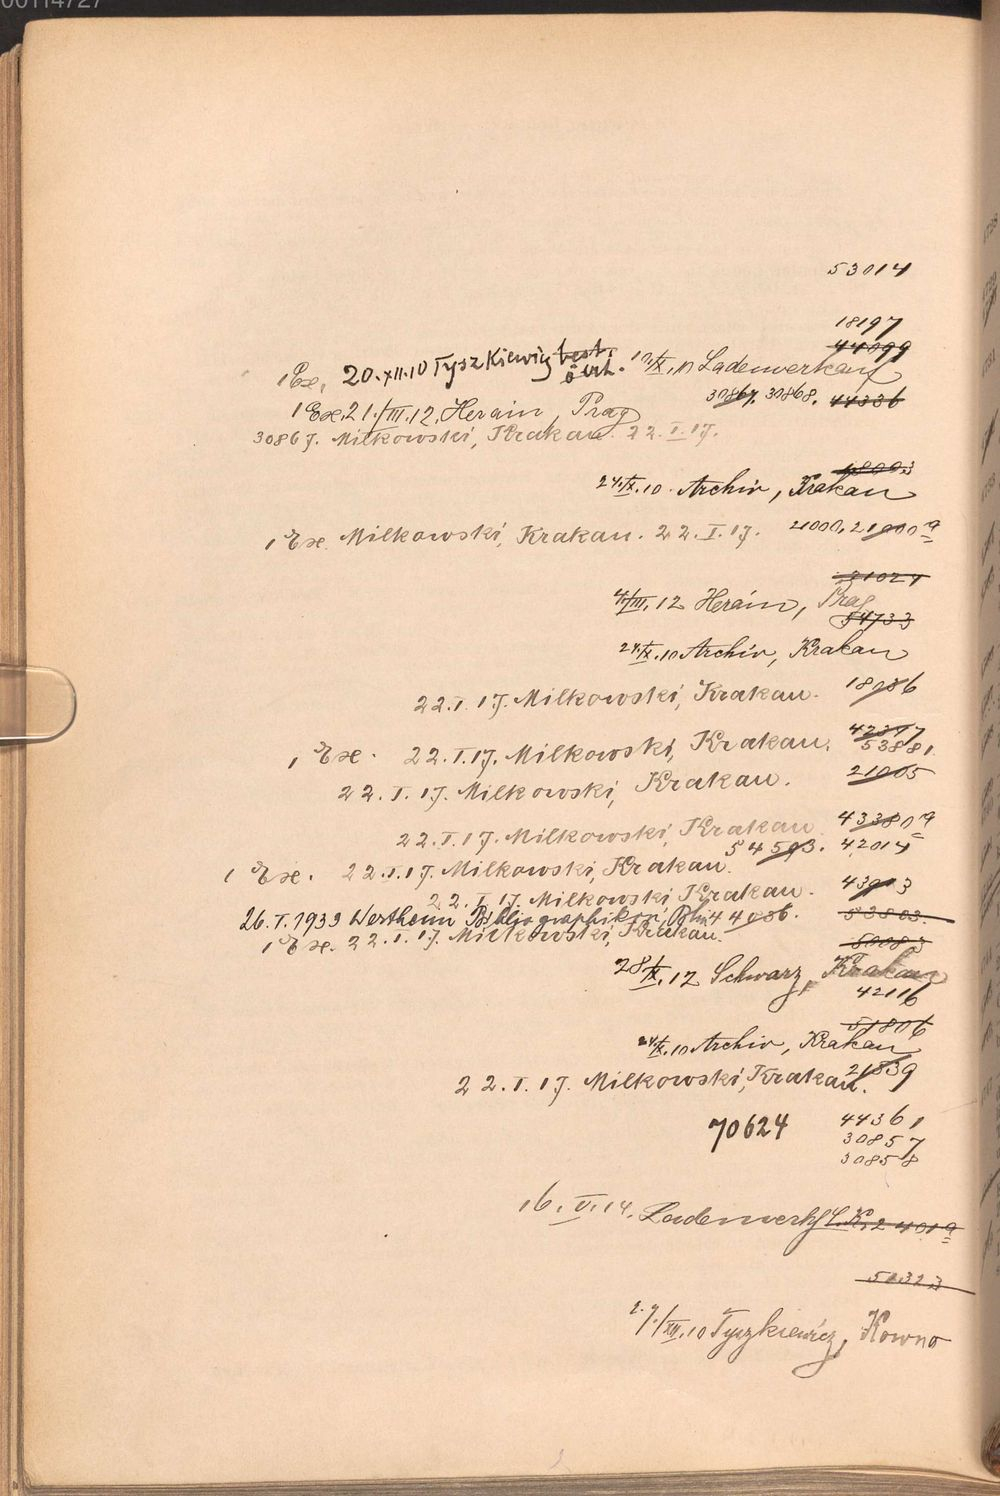 00114727
53014
18197
44099
1 Ex. 20.XII.10 Tyszkiewicz best. IX.10 Ladenverkauf
30867. 30868. 44336
1 Ex. 21./III.12. Herain, Prag
30867. Milkowski, Krakau. 22.I.17.
24.IX.10. Archiv, Krakau
1 Ex. Milkowski, Krakau. 22.I.17. 21000, 21000a
21024
4/III.12 Herain, Prag
54733
24.IX.10 Archiv, Krakau
22.I.17. Milkowski, Krakau. 18086
42397
1 Ex. 22.I.17. Milkowski, Krakau. 53881.
22.I.17. Milkowski, Krakau. 21005
22.I.17. Milkowski, Krakau. 43380a
54593. 42014
1 Ex. 22.I.17. Milkowski, Krakau.
22.I.17. Milkowski, Krakau. 43013
26.I.1933 Wertheim Bibliographikon, Bln 44086. 53803.
1 Ex. 22.I.17. Milkowski, Krakau.
50083
28/IX.12 Schwarz, Krakau
42116
51806
24.IX.10 Archiv, Krakau
22.I.17. Milkowski, Krakau. 21839
70624 44361
30857
30858
16.V.14. Ladenverkf
50323
29/XII.10 Tyszkiewicz, Kowno